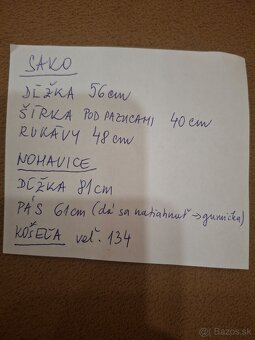 SAKO
DĹŽKA 56cm
ŠÍRKA POD PAZUCAMI 40cm
RUKÁVY 48cm
NOHAVICE
DĹŽKA 81cm
PÁS 61cm (dá sa natiahnuť → gumička)
KOŠEĽA veľ. 134
© bazos.sk